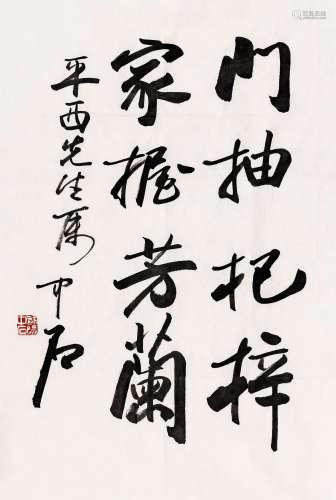 門抽杞梓
家握芳蘭
平西先生属
中石